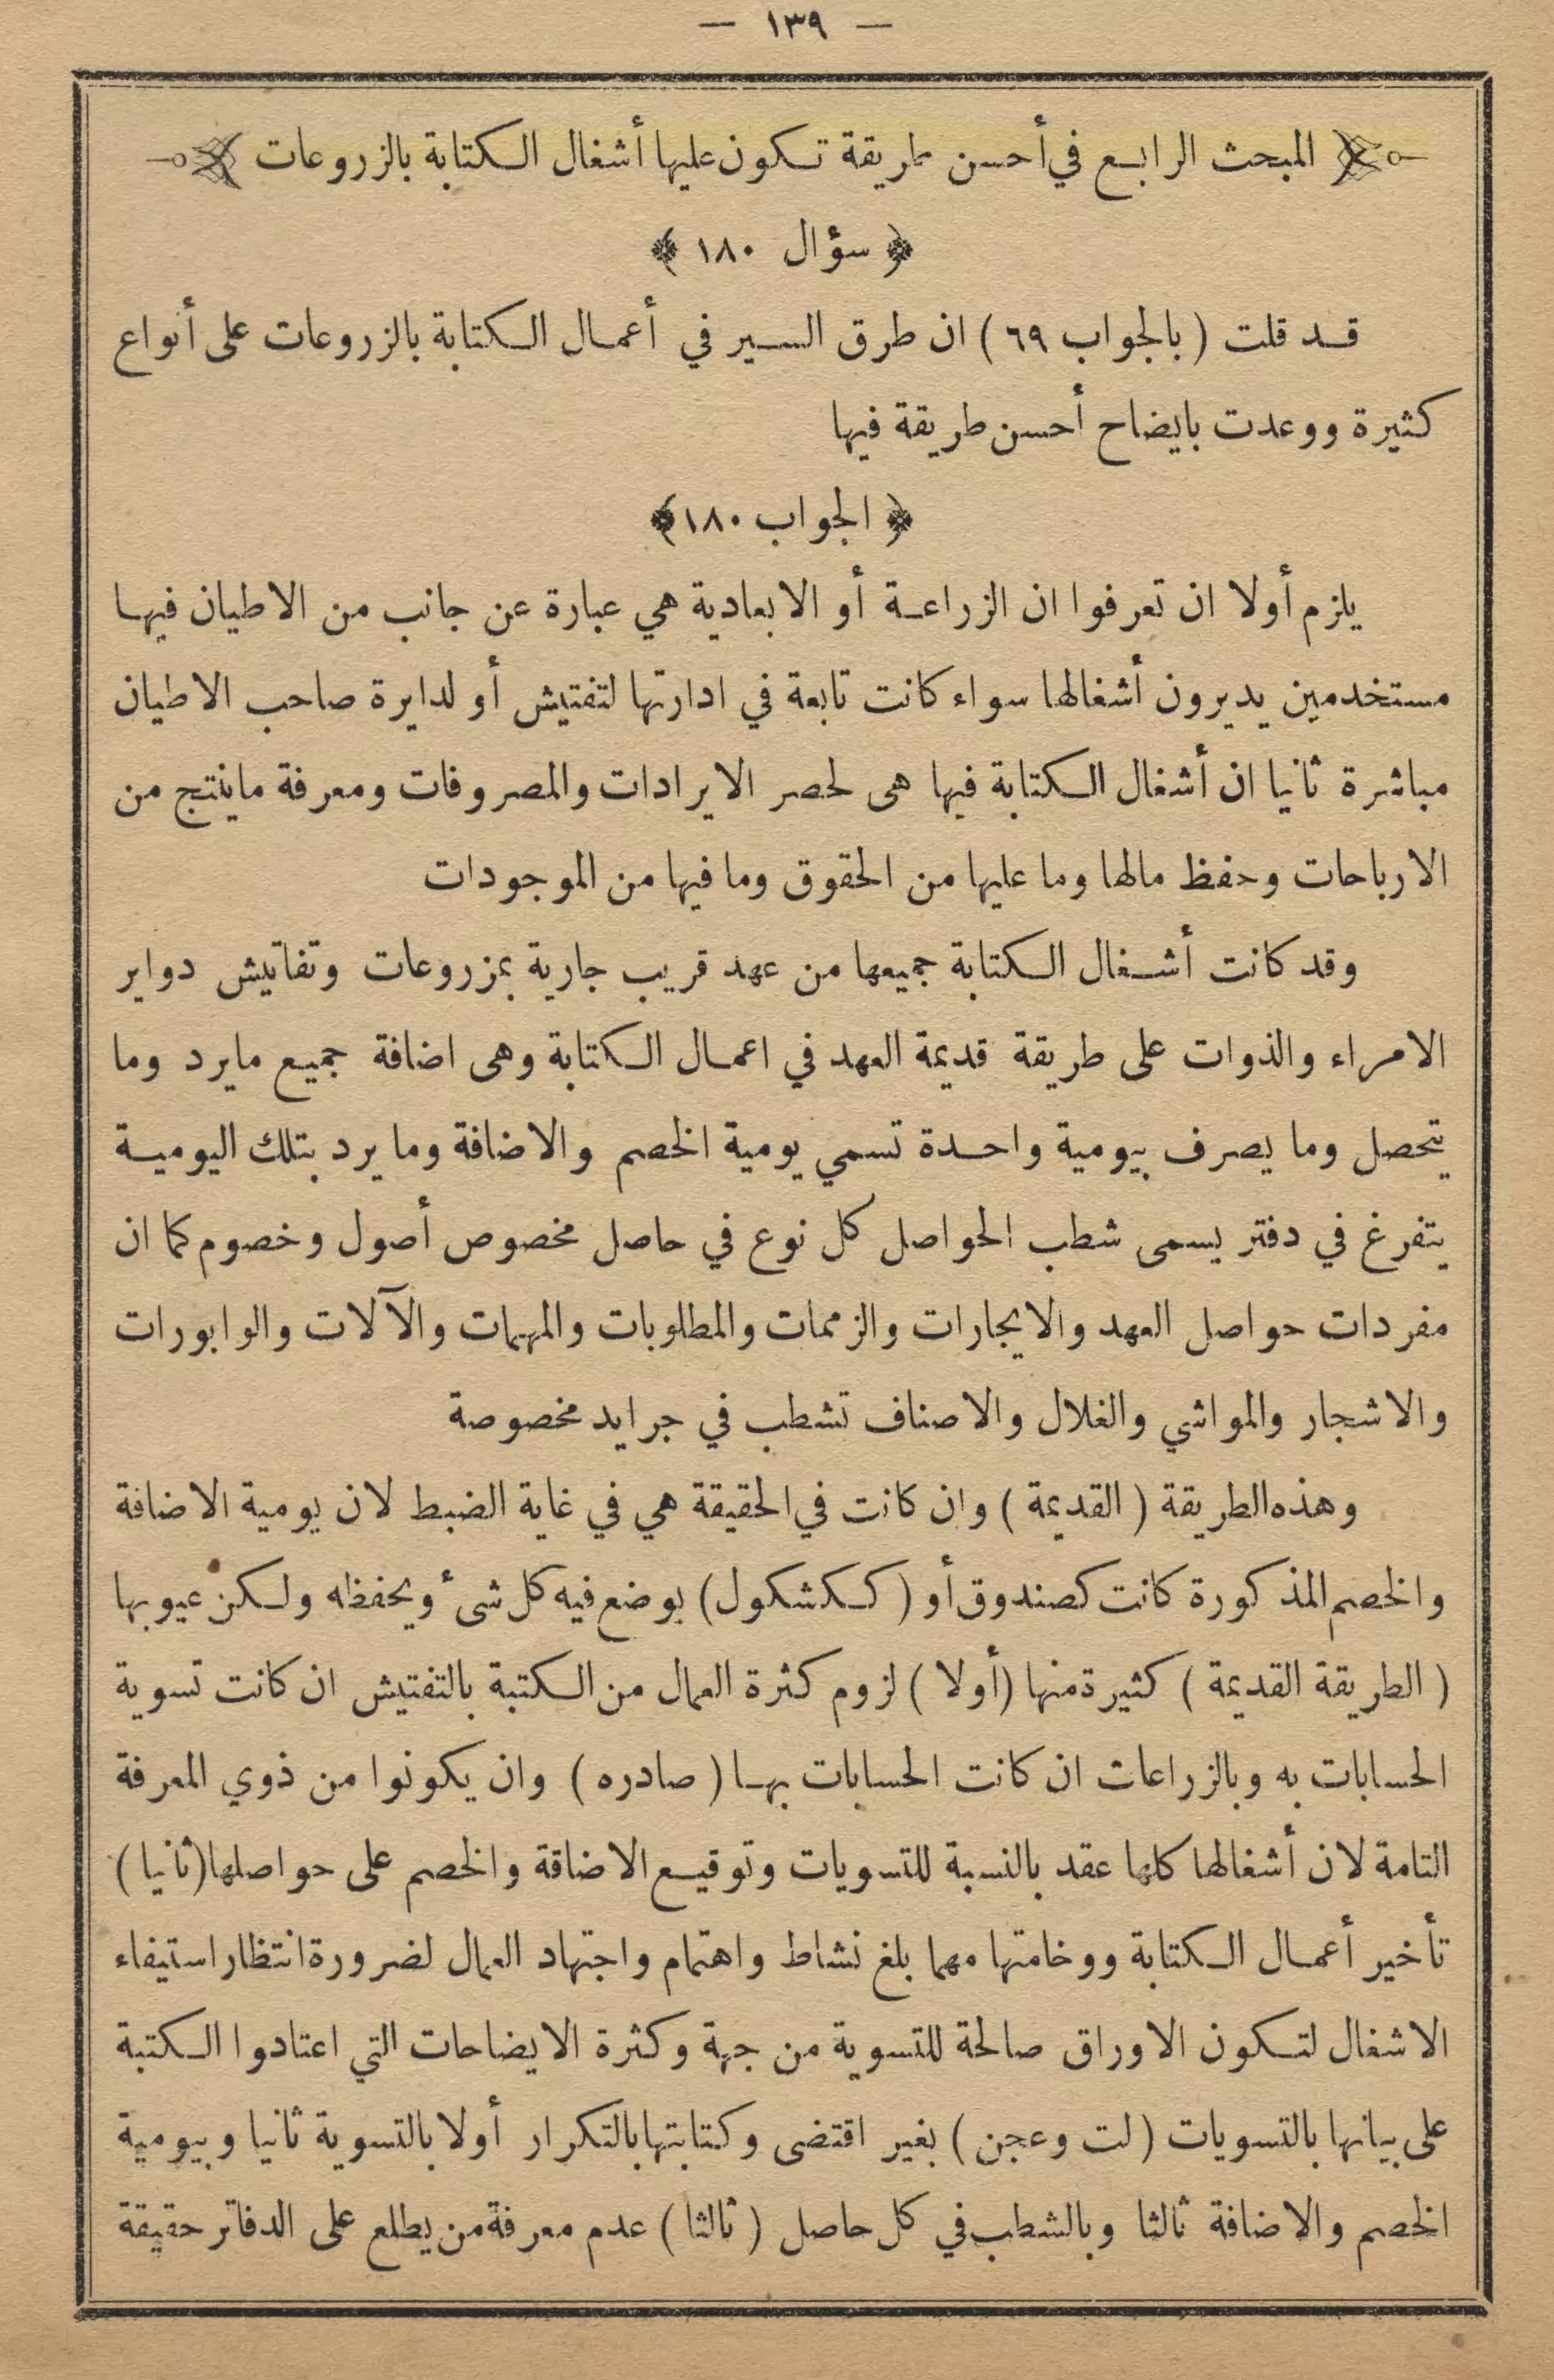 — ١٣٩ —
المبحث الرابع في أحسن طريقة تكون عليها أشغال الكتابة بالزروعات
﴿ سؤال ١٨٠ ﴾
قد قلت ( بالجواب ٦٩ ) ان طرق السير في أعمال الكتابة بالزروعات على أنواع
كثيرة ووعدت بايضاح أحسن طريقة فيها
﴿ الجواب ١٨٠ ﴾
يلزم أولا ان تعرفوا ان الزراعة أو الابعادية هي عبارة عن جانب من الاطيان فيها
مستخدمين يديرون أشغالها سواء كانت تابعة في ادارتها لتفتيش أو لدايرة صاحب الاطيان
مباشرة ثانيا ان أشغال الكتابة فيها هى لحصر الايرادات والمصروفات ومعرفة ماينتج من
الارباحات وحفظ مالها وما عليها من الحقوق وما فيها من الموجودات
وقد كانت أشغال الكتابة جميعها من عهد قريب جارية بمزروعات وتفاتيش دواير
الامراء والذوات على طريقة قديمة العهد في اعمال الكتابة وهى اضافة جميع مايرد وما
يتحصل وما يصرف بيومية واحدة تسمي يومية الخصم والاضافة وما يرد بتلك اليومية
يتفرغ في دفتر يسمى شطب الحواصل كل نوع في حاصل مخصوص أصول وخصوم كما ان
مفردات حواصل العهد والايجارات والزممات والمطلوبات والمهمات والآلات والوابورات
والاشجار والمواشي والغلال والاصناف تشطب في جرايد مخصوصة
وهذه الطريقة ( القديمة ) وان كانت في الحقيقة هي في غاية الضبط لان يومية الاضافة
والخصم المذكورة كانت كصندوق أو ( ككشكول ) يوضع فيه كل شىء ويحفظه ولكن عيوبها
( الطريقة القديمة ) كثيرة منها ( أولا ) لزوم كثرة العمال من الكتبة بالتفتيش ان كانت تسوية
الحسابات به وبالزراعات ان كانت الحسابات بها ( صادره ) وان يكونوا من ذوي المعرفة
التامة لان أشغالها كلها عقد بالنسبة للتسويات وتوقيع الاضافة والخصم على حواصلها ( ثانيا )
تأخير أعمال الكتابة ووخامتها مهما بلغ نشاط واهتمام واجتهاد العمال لضرورة انتظار استيفاء
الاشغال لتكون الاوراق صالحة للتسوية من جهة وكثرة الايضاحات التي اعتادوا الكتبة
على بيانها بالتسويات ( لت وعجن ) بغير اقتضى وكتابتها بالتكرار أولا بالتسوية ثانيا وبيومية
الخصم والاضافة ثالثا وبالشطب في كل حاصل ( ثالثا ) عدم معرفة من يطلع على الدفاتر حقيقة